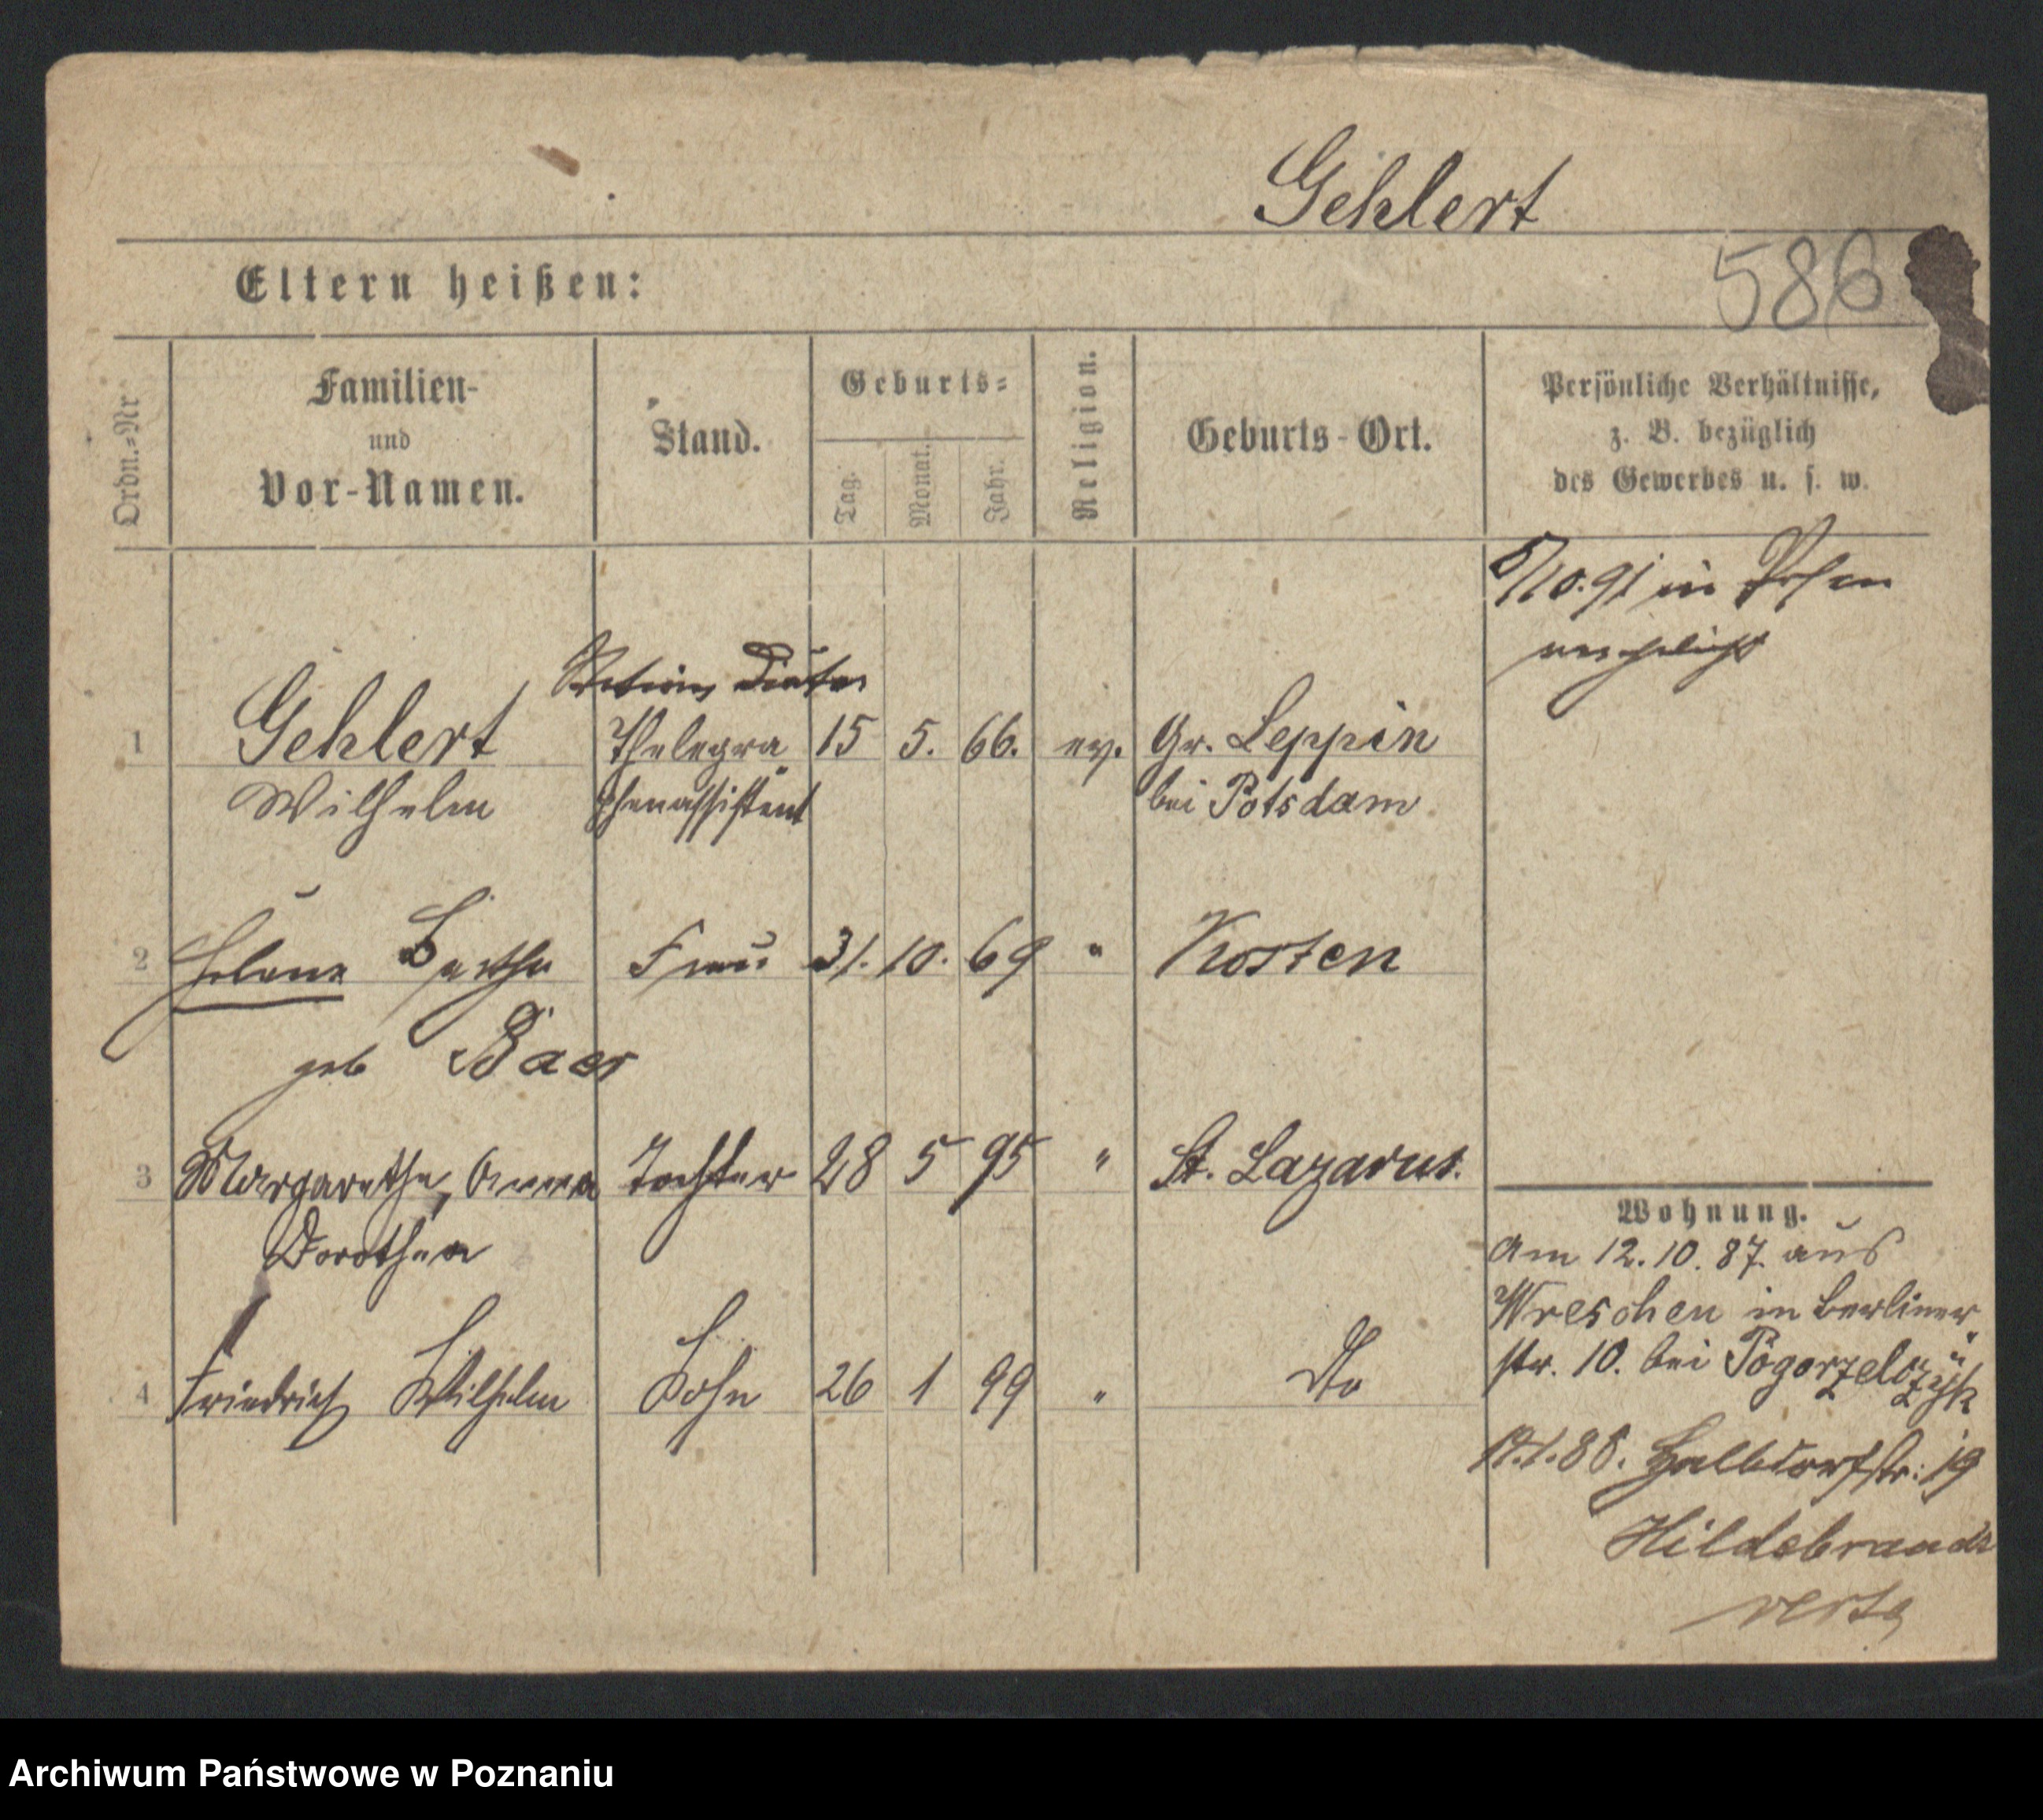 Gehlert
586
Eltern heißen:
Ordn.=Nr
Familien-
und
Vor-Namen.
Stand.
Geburts=
Tag.
Monat.
Jahr.
Religion.
Geburts-Ort.
Persönliche Verhältnisse,
z. B. bezüglich
des Gewerbes u. s. w.
5/10.91 in Posen
verehelicht
Stations Diätar
1 Gehlert Thelegra 15 5. 66. ev. Gr. Leppin
Wilhelm phenassistent bei Potsdam
2 Helene Bertha Frau 31. 10. 69 " Kosten
geb Baer
3 Margarethe, Anna Tochter 28 5 95 " St. Lazarus.
Dorothea
4 Friedrich Wilhelm Sohn 26 1 99 " Do
Wohnung.
Am 12.10.87. aus
Wreschen in Berliner
str. 10. bei
Halbdorfstr: 19
Hildebrandt
verte
Archiwum Państwowe w Poznaniu